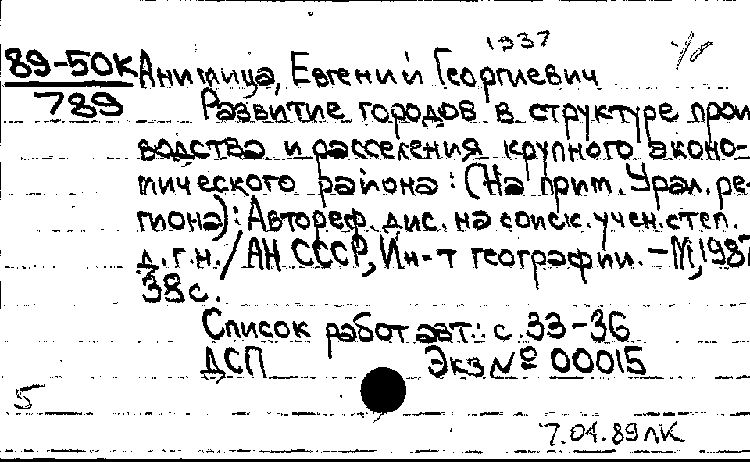 1937
89-50к Анимица, Евгений Георгиевич
789 Развитие городов в структуре произ-
водства и расселения крупного эконо-
мического района: (На прим. Урал. ре-
гиона): Автореф. дис. на соиск. учен. степ.
д.г.н. / АН СССР, Ин-т географии. – М, 1987
38 с.
Список работ авт.: с. 33-36
ДСП Экз № 00015
5
7.04.89 ЛК